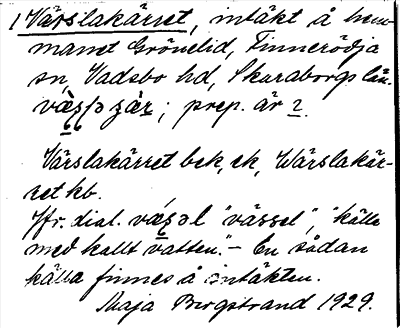 1 Värslakärret, intäkt å hem-
manet Grönelid, Finnerödja
sn, Vadsbo hd, Skaraborgs län.
; prep. är 2.
Värslakärret bek, ek, Wärslakär-
ret kb.
Jfr. dial. "vässel", "källa
med kallt vatten." - En sådan
källa finnes å intäkten.
Maja Bergstrand 1929.